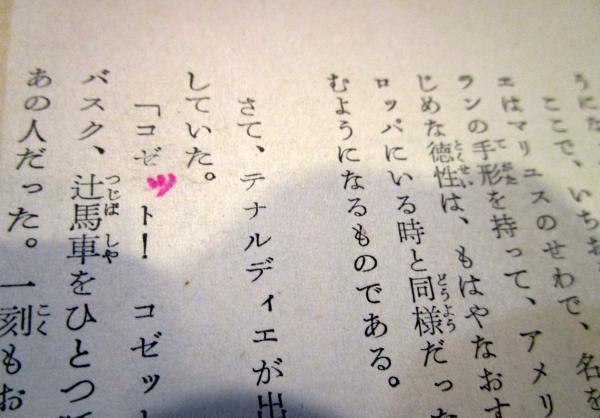 うにな
ここで、いちお
エはマリユスのせわで、名を
ランの手形を持って、アメリ
じめな徳性は、もはやなおす
ロッパにいる時と同様だった
むようになるものである。
さて、テナルディエが出
していた。
「コゼット！　コゼット
バスク、辻馬車をひとつ
あの人だった。一刻もお